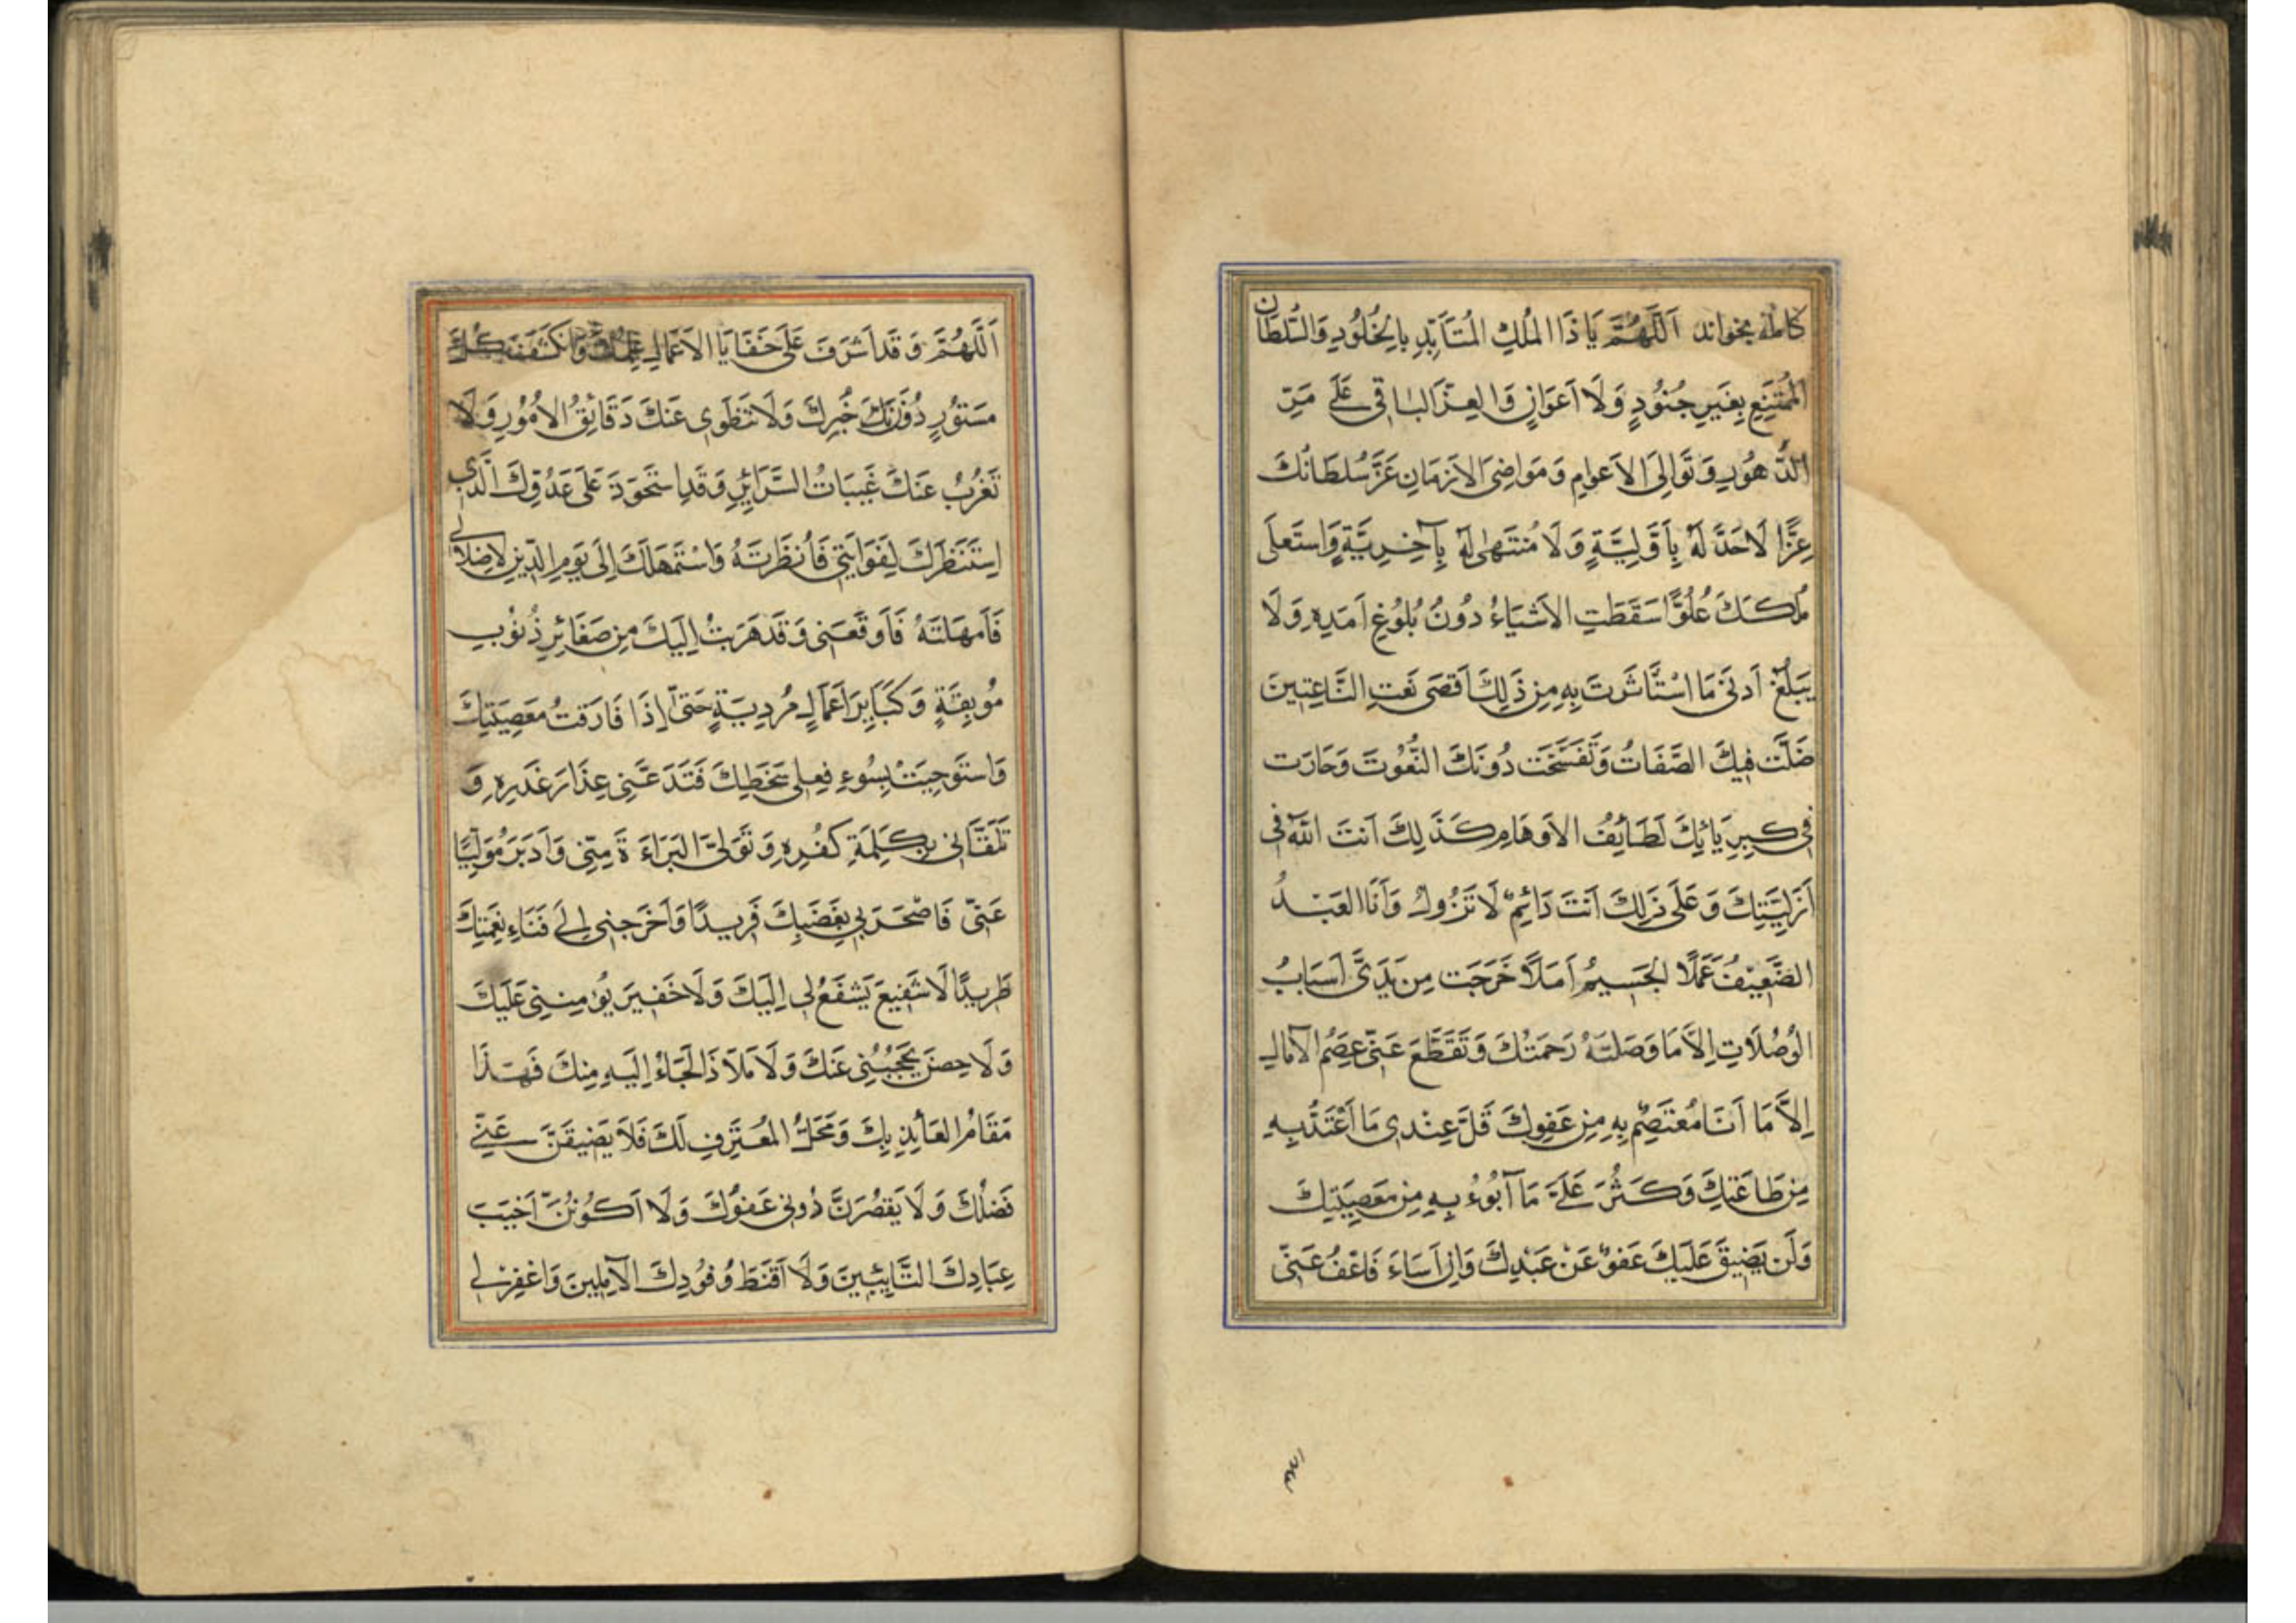 کامله بخواند اَللّٰهُمَّ يَا ذَا المُلكِ المُتَأَبِّدِ بِالخُلُودِ وَالسُّلطَانِ
المُمتَنِعِ بِغَيرِ جُنُودٍ وَلَا اَعوَانٍ وَالعِزِّ البَاقِى عَلٰى مَرِّ
الدُّهُورِ وَتَوَالِى الاَعوامِ وَمَوَاضِى الاَزمَانِ عَزَّ سُلطَانُكَ
عِزًّا لَاحَدَّ لَهُ بِاَوَّلِيَّةٍ وَلَا مُنتَهٰى لَهُ بِآخِرِيَّةٍ وَاستَعلَى
مُلكُكَ عُلُوًّا سَقَطَتِ الاَشيَاءُ دُونَ بُلُوغِ اَمَدِهِ وَلَا
يَبلُغُ اَدنٰى مَا اسْتَأثَرتَ بِهِ مِن ذٰلِكَ اَقصَى نَعتِ النَّاعِتِينَ
ضَلَّت فِيكَ الصِّفَاتُ وَتَفَسَّخَت دُونَكَ النُّعُوتَ وَحَارَت
فِى كِبرِيَائِكَ لَطَائِفُ الاَوهَامِ كَذٰلِكَ اَنتَ اللّٰهُ فِى
اَزَلِيَّتِكَ وَعَلَى ذٰلِكَ اَنتَ دَائِمٌ لَا تَزُولُ وَاَنَا العَبْدُ
الضَّعِيْفُ عَمَلًا الجَسِيمُ اَمَلًا خَرَجَت مِن يَدَىَّ اَسبَابُ
الوُصُلَاتِ اِلَّا مَا وَصَلَتهُ رَحمَتُكَ وَتَقَطَّعَ عَنِّى عِصَمُ الآمَالِ
اِلَّا مَا اَنَا مُعتَصِمٌ بِهِ مِن عَفوِكَ قَلَّ عِندِى مَا اَعْتَدُّ بِهِ
مِن طَاعَتِكَ وَكَثُرَ عَلَىَّ مَا اَبُوءُ بِهِ مِن مَعصِيَتِكَ
وَلَن يَضِيقَ عَلَيكَ عَفوٌ عَنْ عَبْدِكَ وَاِن اَسَاءَ فَاعْفُ عَنِّى
اَللّٰهُمَّ وَقَد اَشرَفَ عَلَى خَفَايَا الاَعمَالِ عِلمُكَ وَانكَشَفَ كُلُّ
مَستُورٍ دُونَ خُبرِكَ وَلَا تَنطَوِى عَنكَ دَقَائِقُ الاُمُورِ وَلَا
تَعزُبُ عَنكَ غَيبَاتُ السَّرَائِرِ وَقَدِ استَحوَذَ عَلَى عَدُوِّكَ الَّذِى
اِستَنظَرَكَ لِغَوَايَتِى فَاَنظَرتَهُ وَاسْتَمهَلَكَ اِلَى يَومِ الدِّينِ لِاِضلَالِى
فَاَمهَلتَهُ فَاَوقَعَنِى وَقَد هَرَبتُ اِلَيكَ مِن صَغَائِرِ ذُنُوبٍ
مُوبِقَةٍ وَكَبَايِرِ اَعمَالٍ مُردِيَةٍ حَتّٰى اِذَا فَارَقتُ مَعصِيَتِكَ
وَاستَوجِبتُ بِسُوءِ فِعلِى سَخَطِكَ فَتَدَ عَنِّى عِذَارَ غَدرِهِ وَ
تَلَقَّانِى بِكَلِمَةِ كُفرِهِ وَتَوَلَّى البَرَاءَةَ مِنِّى وَاَدبَرَ مُوَلِّيًا
عَنِّى فَاصْحَرَبِى بِغَضَبِكَ فَرِيدًا وَاَخرَجنِى اِلٰى فَنَاءِ نِعمَتِكَ
طَرِيدًا لَا شَفِيعَ يَشفَعُ لِى اِلَيكَ وَلَا خَفِيرَ يُؤمِنُنِى عَلَيكَ
وَلَا حِصنَ يَحجُبُنِى عَنكَ وَلَا مَلَاذَ اَلجَاءُ اِلَيهِ مِنكَ فَهٰذَا
مَقَامُ العَائِذِ بِكَ وَمَحَلُّ المُعتَرِفِ لَكَ فَلَا يَضِيقَنَّ عَنِّى
فَضلُكَ وَلَا يَقصُرَنَّ دُونِى عَفوُكَ وَلَا اَكُونَنَّ اَخيَبَ
عِبَادِكَ التَّايِبِينَ وَلَا اَقنَطَ وُفُودِكَ الآمِلِينَ وَاغفِر لِى